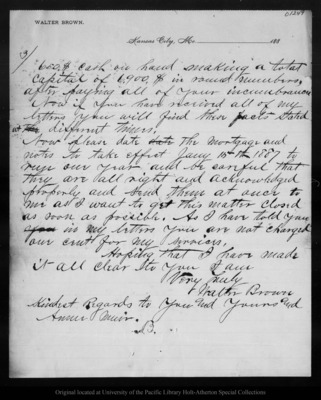 01249
WALTER BROWN.
Kansas City, Mo 188
3/
600.$ cash on hand making a total
capital of 6,900.$ in round numbers
after paying all of your incumbrances
Now if you have received all of my
letters you will find these facts stated
different times.
Now please date the mortgage and
notes to take effect Jany 15th 1887 to
run one year and be careful that
they are all right and acknowledged
properly and send them at once to
me as I want to get this matter closed
as soon as possible. As I have told you
in my letters you are not charged
one cent for my services,
Hoping that I have made
it all clear to you I am
Very truly
Walter Brown
Kindest Regards to You and Yours and
Annie Muir.
B.
Original located at University of the Pacific Library Holt-Atherton Special Collections